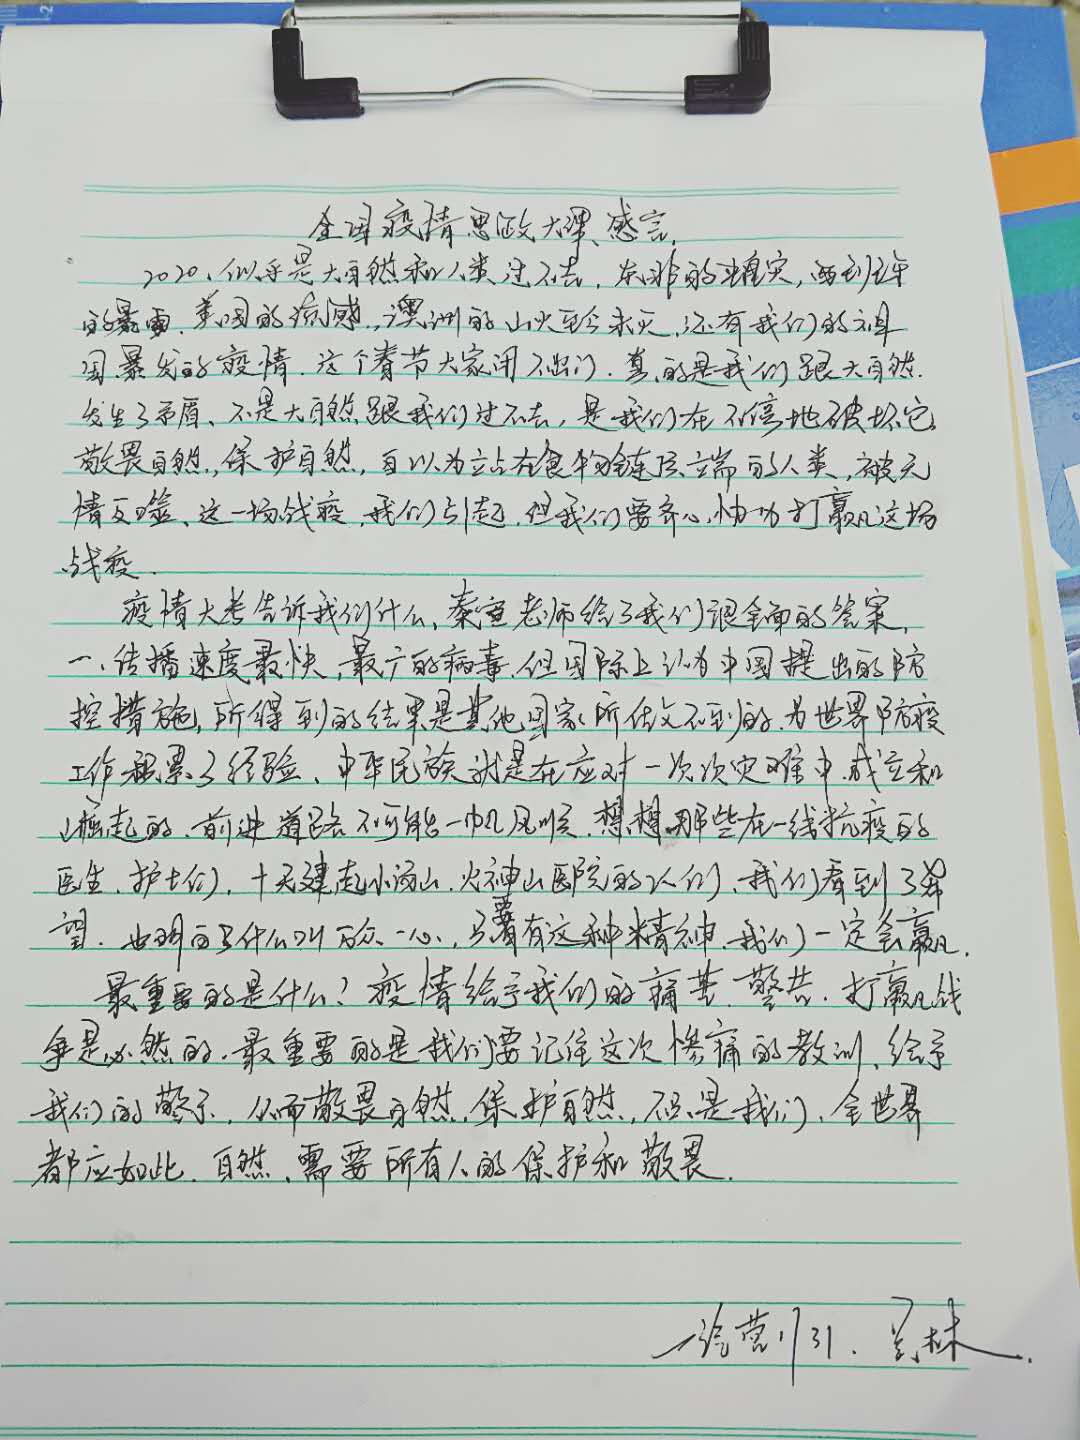 全国疫情思政大课、感言.
2020、似乎是大自然和人类过不去，东非的蝗灾，西班牙
的暴雪、美国的流感，澳洲的山火至今未灭，还有我们的祖
国暴发的疫情．这个春节大家闭不出门．真的是我们跟大自然．
发生了矛盾、不是大自然跟我们过不去，是我们在不停地破坏它，
敬畏自然，保护自然，自以为立站在食物链顶端的人类，被无
情反噬、这一场战疫，我们引起，但我们要齐心，协力打赢这场
战疫．
疫情大考告诉我们什么，秦宣老师给了我们很全面的答案，
一、传播速度最快，最广的病毒，但国际上认为中国提出的防
控措施，所得到的结果是其他国家所做不到的，为世界防疫
工作积累了经验、中华民族就是在应对一次次灾难中，成立和
崛起的．前进道路不可能一帆风顺．想想那些在一线抗疫的
医生，护士们，十天建起小汤山，火神山医院的人们，我们看到了希
望．也明白了什么叫万众一心，只要有这种精神，我们一定会赢．
最重要的是什么？疫情给予我们的痛苦．警告．打赢战
争是必然的．最重要的是我们要记住这次惨痛的教训，给予
我们的警示，从而敬畏自然，保护自然，不只是我们，全世界
都应如此．自然、需要所有人的保护和敬畏．
营1931．吴林．